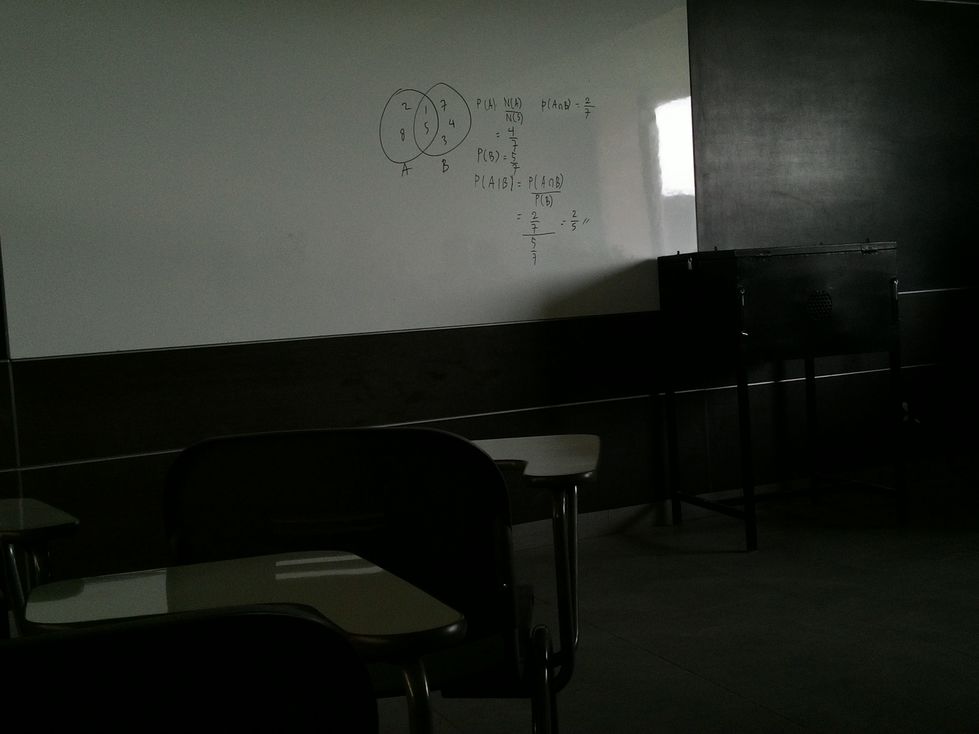 2 1 7
8 5 4
3
A B
P(A) N(A)/N(S) P(A∩B) = 2/7
= 4/7
P(B) = 5/7
P(A|B) = P(A∩B)/P(B)
= 2/7 / 5/7 = 2/5 //